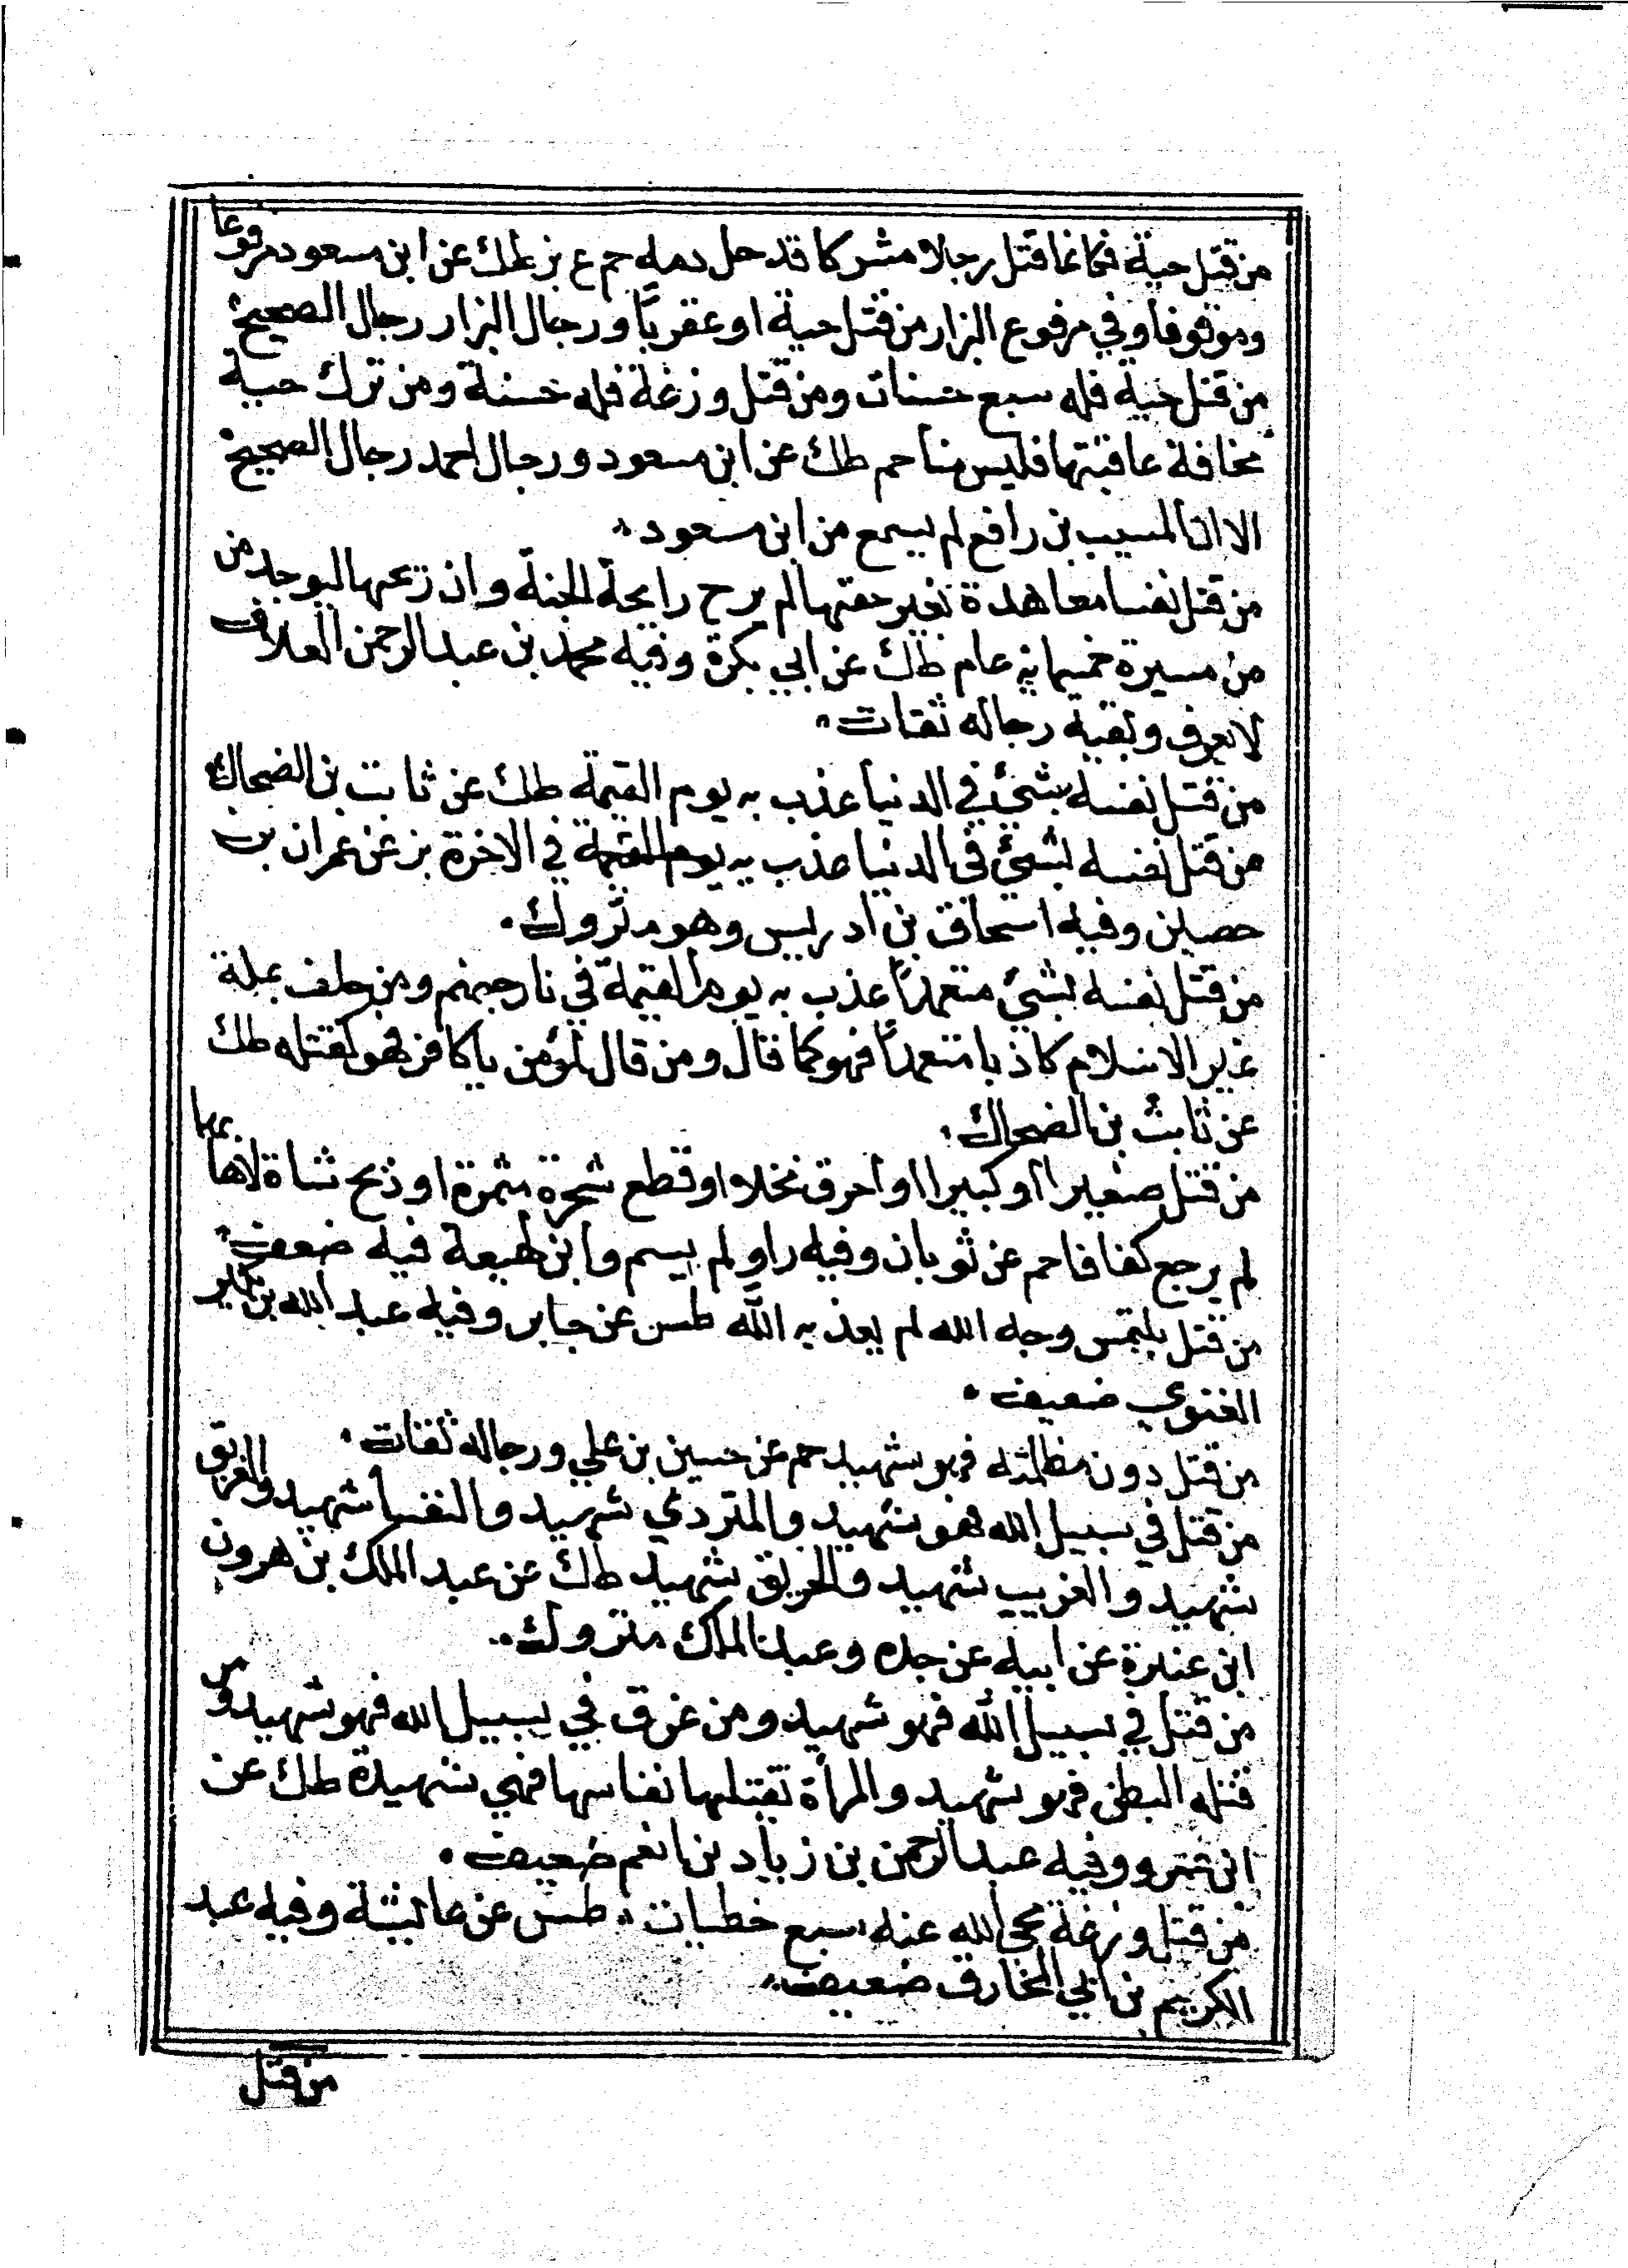 من قتل حية فكانما قتل رجلا مشركا قد حل دمه حم ع بز طك عن ابن مسعود مرفوعا
وموقوفا وفي مرفوع البزار من قتل حية او عقربا ورجال البزار رجال الصحيح
من قتل حية فله سبع حسنات ومن قتل وزغة فله حسنة ومن ترك حية
مخافة عاقبتها فليس منا حم طك عن ابن مسعود ورجال احمد رجال الصحيح
الا ان المسيب بن رافع لم يسمع من ابن مسعود
من قتل نفسا معاهدة بغير حقها لم يرح رايحة الجنة وان ريحها ليوجد من
من مسيرة خمسماية عام طك عن ابي بكرة وفيه محمد بن عبد الرحمن العلاف
لا يعرف وبقية رجاله ثقات
من قتل نفسه بشئ في الدنيا عذب به يوم القيمة طك عن ثابت بن الضحاك
من قتل نفسه بشئ في الدنيا عذب به يوم القيمة في الاخرة بز عن عمران بن
حصين وفيه اسحاق بن ادريس وهو متروك
من قتل نفسه بشئ متعمدا عذب به يوم القيمة في نار جهنم ومن حلف بملة
غير الاسلام كاذبا متعمدا فهو كما قال ومن قال لمؤمن يا كافر فهو كقتله طك
عن ثابت بن الضحاك
من قتل صغيرا او كبيرا او احرق نخلا او قطع شجرة مثمرة او ذبح شاة لاهابها
لم يرجع كفافا حم عن ثوبان وفيه راو لم يسم وابن لهيعة فيه ضعف
من قتل يلتمس وجه الله لم يعذبه الله طس عن جابر وفيه عبد الله بن بكير
الغنوي ضعيف
من قتل دون مظلمته فهو شهيد حم عن حسين بن علي ورجاله ثقات
من قتل في سبيل الله فهو شهيد والمتردي شهيد والنفسا شهيد والغريق
شهيد والغريب شهيد والحريق شهيد طك عن عبد الملك بن هرون
ابن عنترة عن ابيه عن جده وعبد الملك متروك
من قتل في سبيل الله فهو شهيد ومن غرق في سبيل الله فهو شهيد ومن
قتله البطن فهو شهيد والمرأة تقتلها نفاسها فهي شهيدة طك عن
ابن عمرو وفيه عبد الرحمن بن زياد بن انعم ضعيف
من قتل وزغة محى الله عنه سبع خطيات طس عن عايشة وفيه عبد
الكريم بن ابي المخارق ضعيف
من قتل